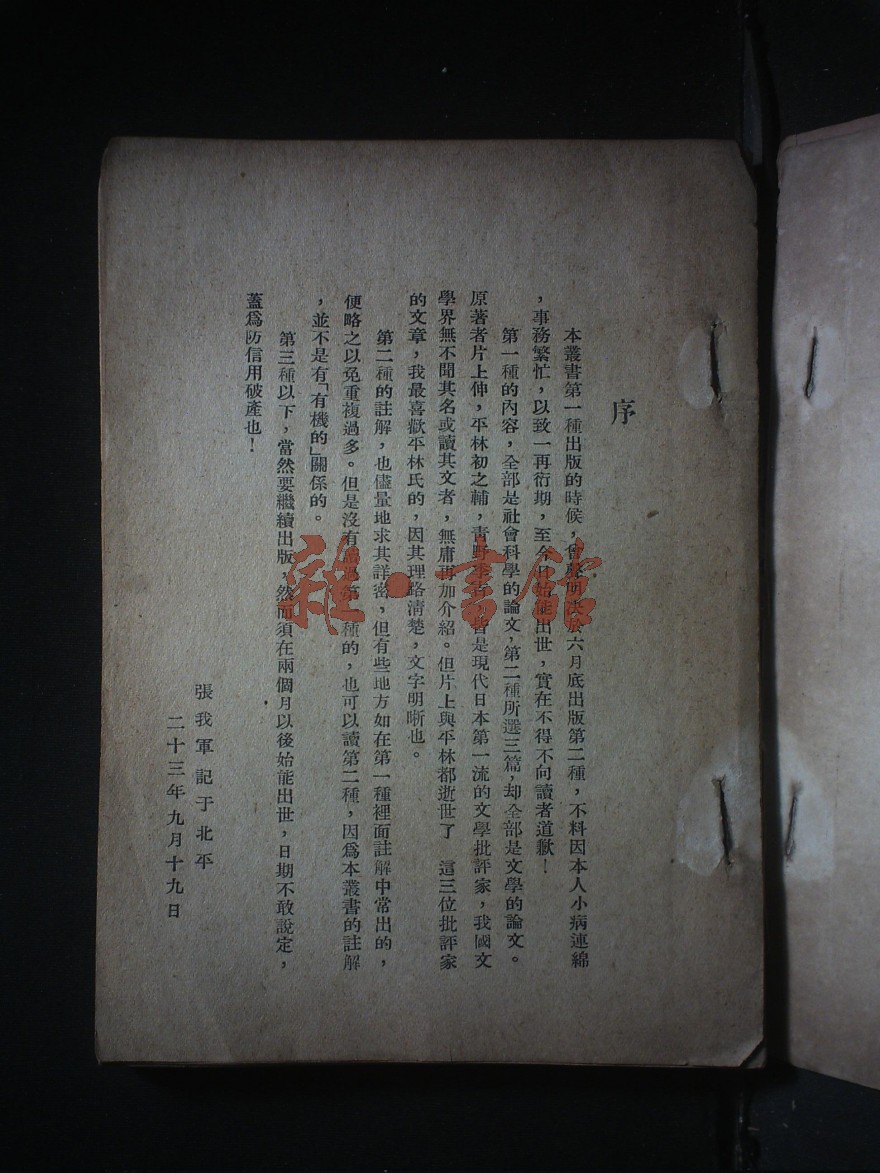 序
本叢書第一種出版的時候，曾聲明決於六月底出版第二種，不料因本人小病連綿
，事務繁忙，以致一再衍期，至今日始能出世，實在不得不向讀者道歉！
第一種的內容，全部是社會科學的論文，第二種所選三篇，却全部是文學的論文。
原著者片上伸，平林初之輔，青野季吉，皆是現代日本第一流的文學批評家，我國文
學界無不聞其名或讀其文者，無庸再加介紹。但片上與平林都逝世了　這三位批評家
的文章，我最喜歡平林氏的，因其理路淸楚，文字明晰也。
第二種的註解，也儘量地求其詳密，但有些地方如在第一種裡面註解中常出的，
便略之以免重複過多。但是沒有第一種的，也可以讀第二種，因爲本叢書的註解
，並不是有「有機的」關係的。
第三種以下，當然要繼續出版，然而須在兩個月以後始能出世，日期不敢說定，
蓋爲防信用破產也！
張我軍記于北平
二十三年九月十九日
雜·書館